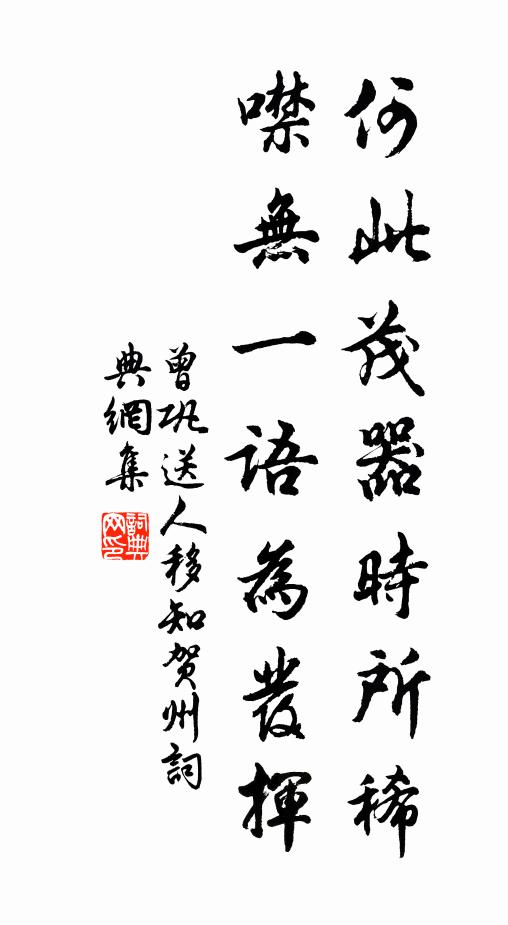 何此茂器時所稀
噤無一語為發揮
曾巩送人移知贺州詞
典網集
詞典
网印